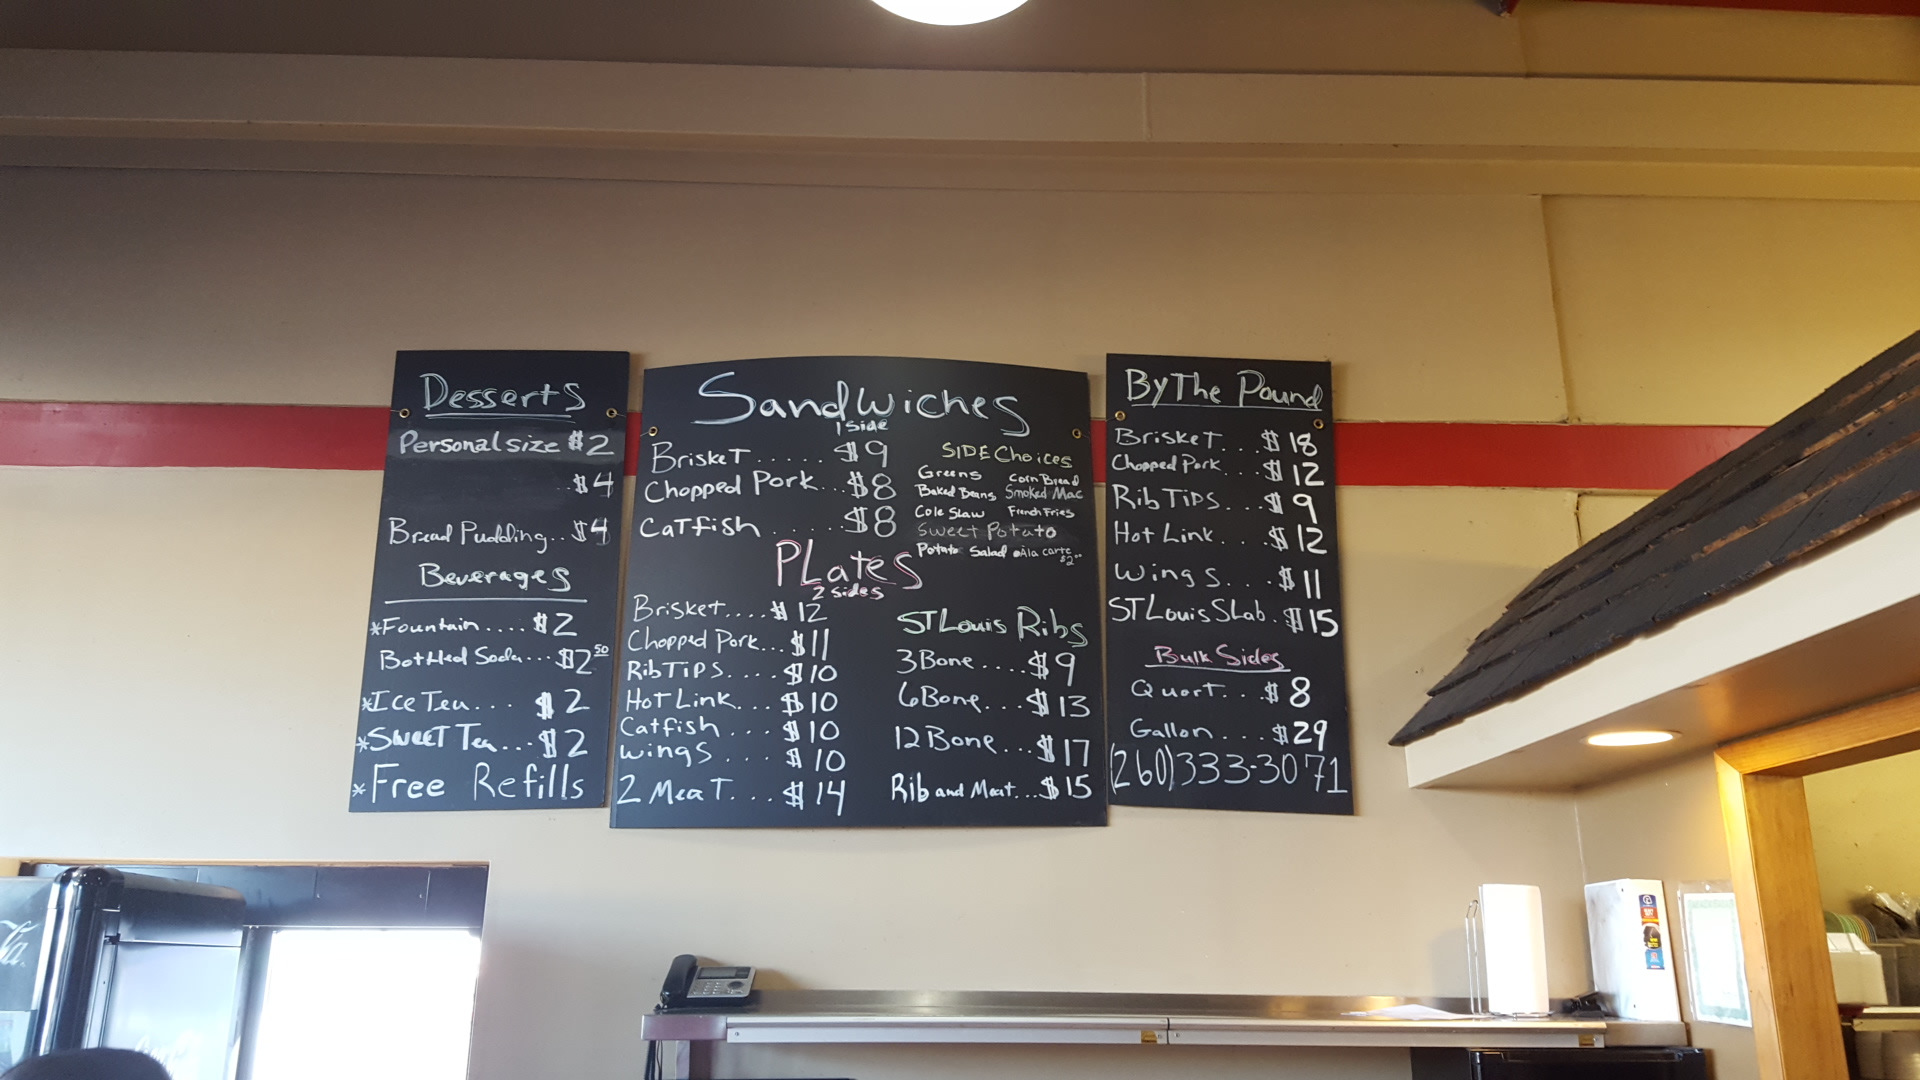 Desserts
Personal size $2
..$4
Bread Pudding..$4
Beverages
*Fountain....$2
Bottled Soda...$2.50
*Ice Tea... $2
*Sweet Tea...$2
*Free Refills
Sandwiches
1 side
Brisket.....$9
Chopped Pork...$8
Catfish.....$8
SIDE Choices
Greens Corn Bread
Baked Beans Smoked Mac
Cole Slaw French Fries
Sweet Potato
Potato Salad •Ala carte
$2.00
PLates
2 sides
Brisket....$12
Chopped Pork...$11
Rib Tips....$10
Hot Link...$10
Catfish...$10
Wings...$10
2 Meat...$14
ST Louis Ribs
3 Bone....$9
6 Bone...$13
12 Bone...$17
Rib and Meat...$15
By The Pound
Brisket...$18
Chopped Pork...$12
Rib Tips...$9
Hot Link...$12
Wings...$11
ST Louis SLab..$15
Bulk Sides
Quart...$8
Gallon...$29
(260)333-3071